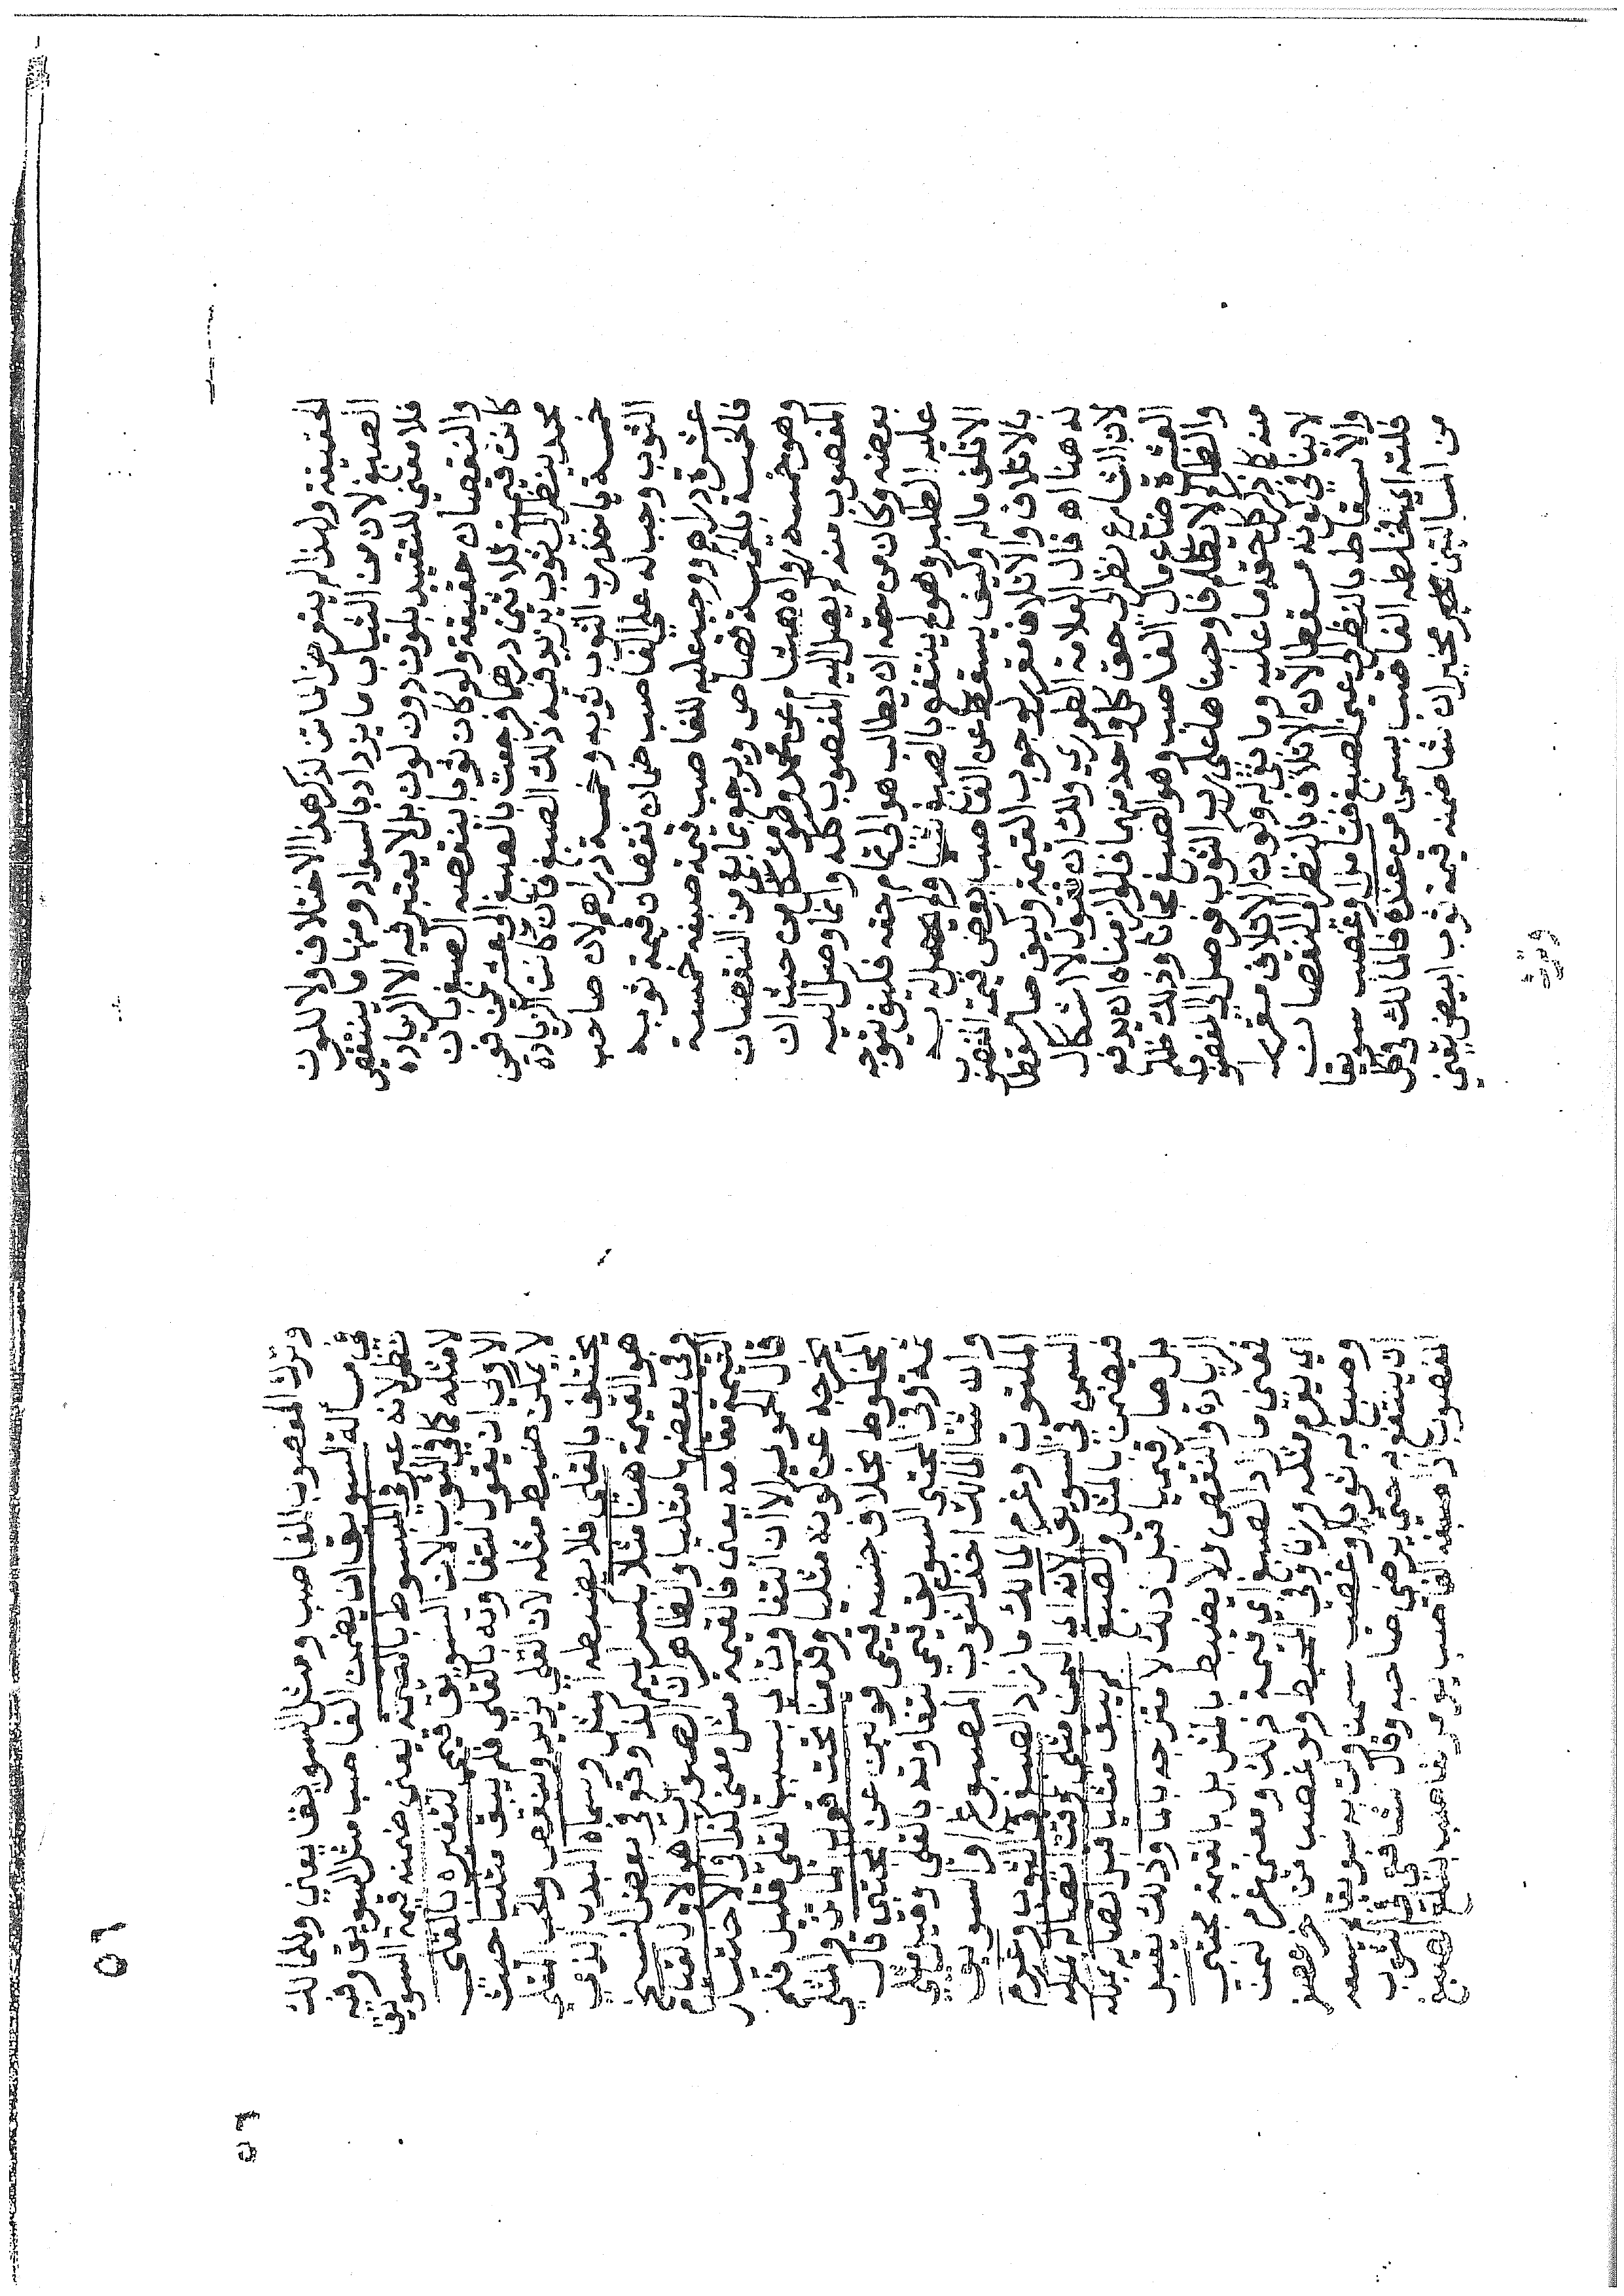 لحقيقة ولهذا لم يتعرض الماتن لذكر هذا الاختلاف ولا للون
الصبغ لان من الثياب ما يزداد بالسواد ومنها ما ينتقص
فلا معنى للتقييد بلون دون لون بل لا يعتبر فيه الا الزيادة
والنقصان حقيقة ولو كان ثوبا ينقصه الصبغ بان
كانت قيمته ثلاثين درهما فرجعت بالصبغ الى عشرين فعن
محمد ينظر الى ثوب يزيد فيه ذلك الصبغ فان كانت الزيادة
خمسة ياخذ رب الثوب ثوبه وخمسة دراهم لان صاحب
الثوب وجب له على الغاصب ضمان نقصان قيمة ثوبه
عشرة دراهم ووجب عليه للغاصب قيمة صبغه خمسة
فالخمسة بالخمسة قصاص ويرجع بما بقي من النقصان
وهو خمسة رواه هشام عن محمد وهو مشكل من حيث ان
المغصوب منه لم يصل اليه المغصوب كله وانما وصل اليه
بعضه وكان من حقه ان يطالب هو الى تمام حقه فكيف يتوجه
عليه الطلب وهو لم ينتفع بالصبغ شيئا ولم يحصل له به
الا تلف ماله وكيف يسقط عن الغاصب بعض قيمة المغصوب
بالاتلاف والاتلاف مقرر لوجوب القيمة وكيف صار مسقطا
له هنا اه قال العلامة الطوري ولك ان تقول لا اشكال
لان الشارع نظر الى حق كل واحد منهما فلو الزمناه ان يدفع
العشرة ضاع مال الغاصب وهو الصبغ مجانا وذلك ظلم
والظالم لا يظلم فاوجبنا ما على رب الثوب فوصل الى المغصوب
منه كل حقه ما عليه وما بقي له وكون الاتلاف مقررا
لا ينافي كونه مسقطا لان الاتلاف بالنظر الى النقصان
والاسقاط بالنظر الى عين الصبغ فتامل او غصب سويقا
فلته اي فخلطه الغاصب بسمن من عنده فالمالك في كل
من المسالتين مخير ان شا ضمنه قيمة ثوب ابيض يعني
وترك
٥٦
وترك المغصوب للغاصب ومثل السويق يعني وللمالك
في مسالة السويق ان يضمن الغاصب مثل السويق وفيه
نظر لانه عبر في المبسوط بالقيمة يعني ضمنه قيمة السويق
لا مثله كما في الثوب لان السويق قيمي لتغيره بالقلي
الاولى ان يقول لتفاوته بالقلي فلم يبق مثليا حيث
لا يمكن ضبط مثله لان القلي يزيد وينقص ولحب المقلي
يختلف بالقلي فلا يضبطه المثل وسماه البدل الذي
هو القيمة هنا مثلا بكسر الميم كذا وقع في بعض النسخ
وفي بعضها مثليا والظاهر ان الصواب هو الاول لقيام
القيمة مقامه يعني فالقيمة مثل معنى كذا في الاختيار
قال الحموي الا ان التفاوت بسبب القلي قليل فلم
يخرجه عن كونه مثليا وقدمنا تحت قول الماتن والمثلي
المخلوط بخلاف جنسه قيمي فوبين عن المجتبى قال
ثمة وفي المجتبى السويق قيمي لتفاوته بالقلي وقيل مثلي
وان شا المالك اخذ الثوب المصبوغ او السويق
الملتوت وغرم المالك ما زاد الصبغ في الثوب وغرم
السمن في السويق لانه اي السمن مثلي وقت اتصاله بملكه
فيضمن بالمثل والصبغ لم يبق مثليا قبل اتصاله بملكه
بل صار قيميا قبل ذلك لامتزاجه بالما وذلك يقبل
الزيادة والنقص ولا يضبط بالمثل بل بالقيمة مجتبى
فمعنى ما زاد الصبغ اي قيمة ذلك ومعنى غرم السمن
اي يغرم مثله وزنا وفي المحيط ولو غصب من اخر عصفرا
وصبغ به ثوبه او غصب سمنا ولت به سويقا لا يسعه
ان ينتفع به حتى يرضى صاحبه وقال الشافعي في الثوب
المغصوب اذا صبغه الغاصب يومر الغاصب بقلع الصبغ